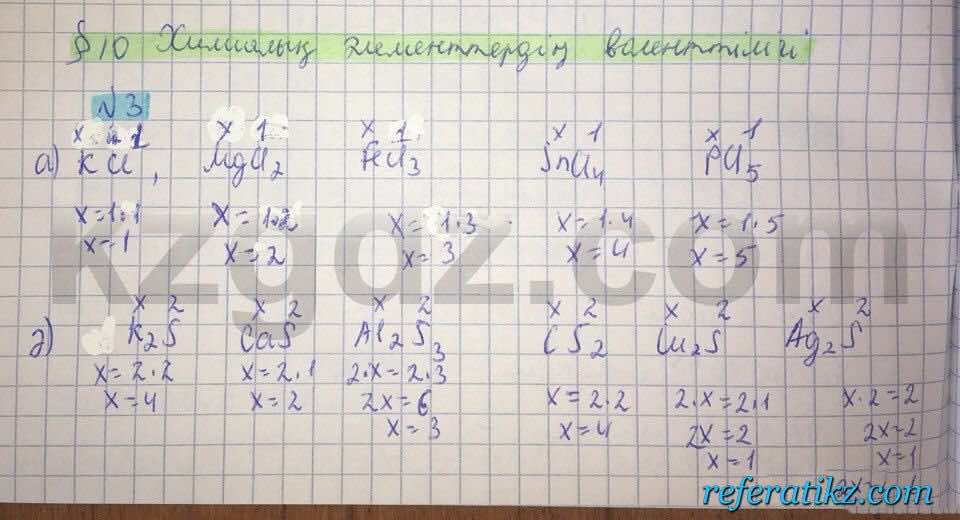 §10 Химиялық элементтердің валенттілігі
№3
x 1 x 1 x 1 x 1 x 1
а) KCl, MgCl₂ FeCl₃ SnCl₄ PCl₅
x=1·1 x=1·2 x=1·3 x=1·4 x=1·5
x=1 x=2 x=3 x=4 x=5
kzgdz.com
x 2 x 2 x 2 x 2 x 2 x 2
ә) K₂S CaS Al₂S₃ CS₂ Cu₂S Ag₂S
x=2·2 x=2·1 2·x=2·3 x=2·2 2·x=2·1 x·2=2
x=4 x=2 2x=6 x=4 2x=2 2x=2
x=3 x=1 x=1
referatikz.com